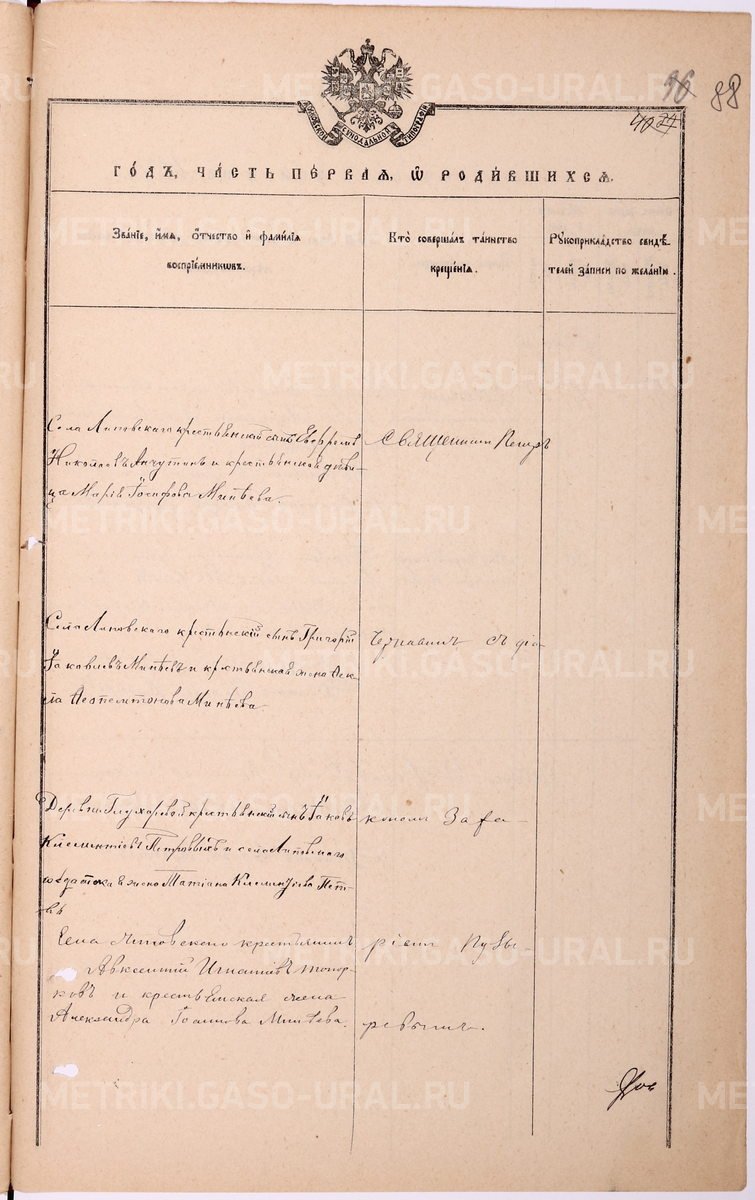 METRIKI.GASO-URAL.RU
96 88
40 27
МОСКОВСКОЙ СѴНОДАЛЬНОЙ ТИПОГРАФІИ
ГО́ДЪ, ЧА́СТЬ ПЕ́РВАЯ, Ѡ҆ РОДИ́ВШИХСЯ.
Зва́нїе, и҆́мя, ѻ҆́тчество и҆ фами́лїа
воспрїе́мникѡвъ.
Кто̀ соверша́лъ та́инство
креще́нїя.
Рꙋкоприкла́дство свидѣ́-
телей за́писи по жела́нїю.
Села Липовскаго крестьянскій сынъ Евфремъ
Николаевъ Анчутинъ и крестьянская дѣви-
ца Марія Іосифова Минѣева.
Священникъ Петръ
Села Липовскаго крестьянскій сынъ Григорій
Яковлевъ Минѣевъ и крестьянская жена
Минѣева.
Чернавинъ съ діа-
Деревни Глухаревой крестьянскій сынъ Яковъ
Климентіевъ Петровыхъ и села Липовскаго
солдатска жена Татіана Климентіева
кономъ Заха-
Села Липовскаго крестьянинъ
Авксентій Игнатіевъ Топор-
ковъ и крестьянская жена
Александра Іоаннова Минѣева.
ріемъ Пузы-
ревымъ.